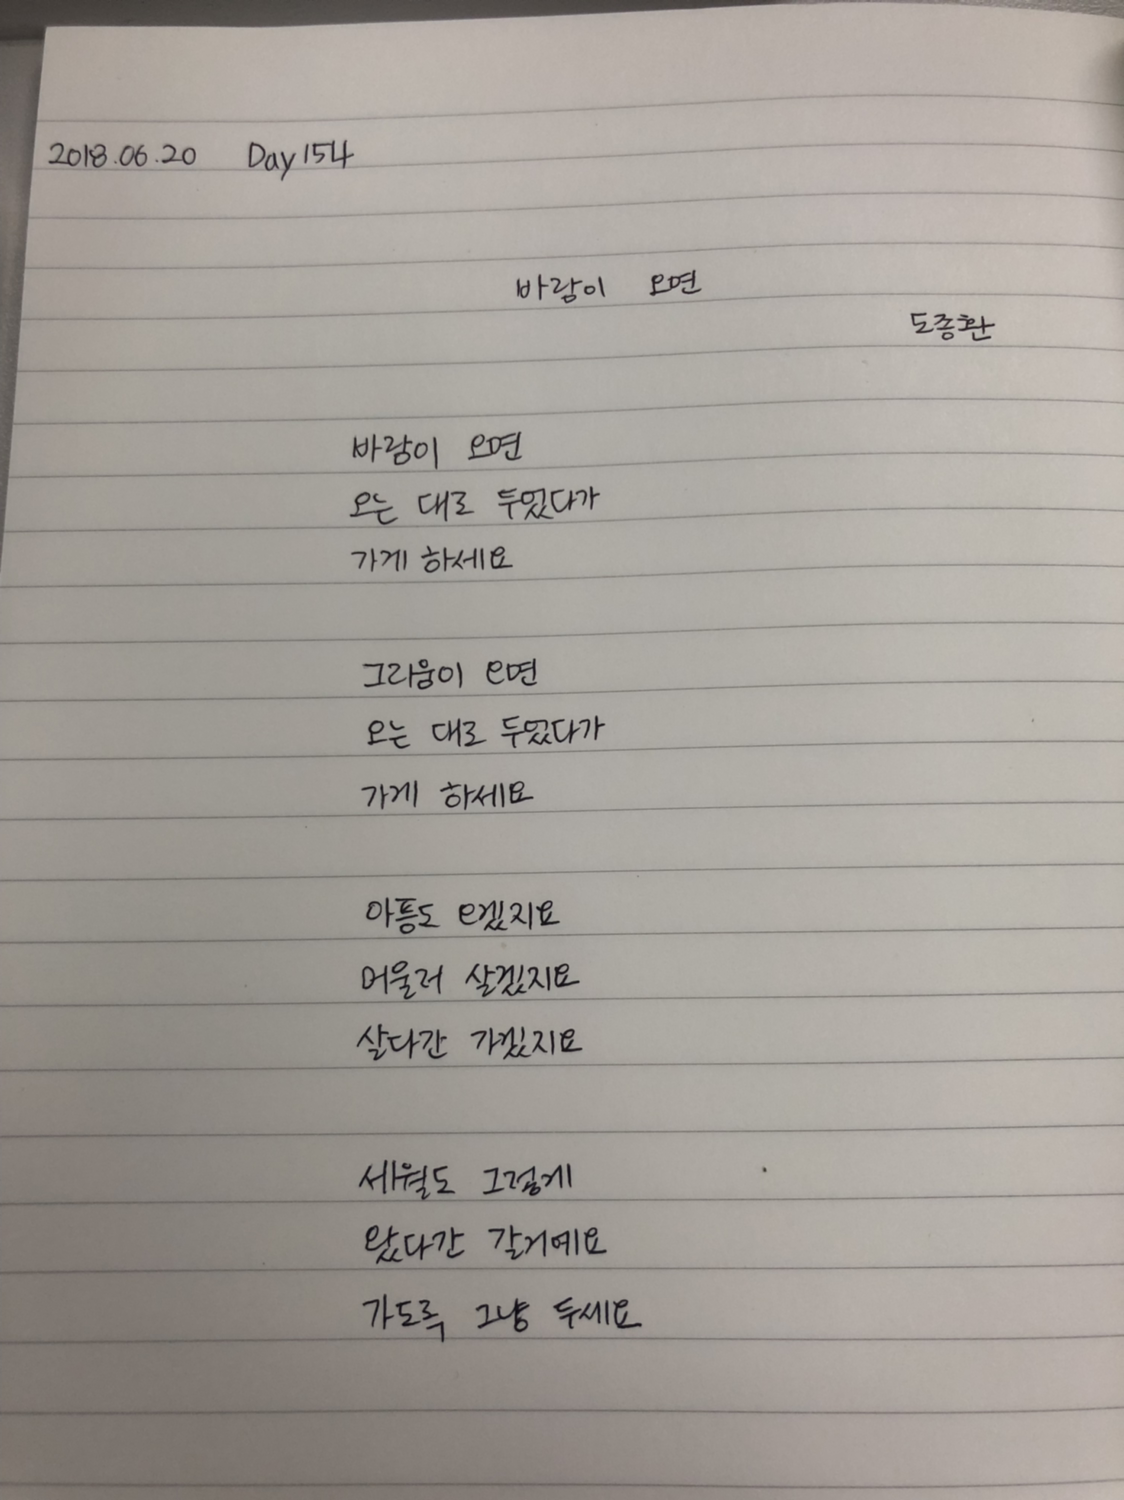 2018.06.20 Day154
바람이 오면
도종환
바람이 오면
오는 대로 두었다가
가게 하세요
그리움이 오면
오는 대로 두었다가
가게 하세요
아픔도 오겠지요
머물러 살겠지요
살다간 가겠지요
세월도 그렇게
왔다간 갈거예요
가도록 그냥 두세요